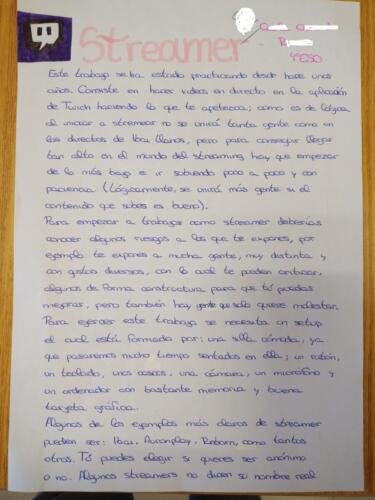 Streamer
4ºESO
Este trabajo se ha estado practicando desde hace unos
años. Consiste en hacer videos en directo en la aplicación
de Twich haciendo lo que te apetezca; como es de lógica
al iniciar a streamear no se unirá tanta gente como en
los directos de Ibai Llanos, pero para conseguir llegar
tan alto en el mundo del streaming hay que empezar
de lo más bajo e ir subiendo poco a poco y con
paciencia (Lógicamente, se unirá más gente si el
contenido que subes es bueno).
Para empezar a trabajar como streamer deberías
conocer algunos riesgos a los que te expones, por
ejemplo te expones a mucha gente, muy distinta y
con gustos diversos, con lo cual te pueden criticar,
algunos de forma constructiva para que tú puedas
mejorar, pero también hay gente que solo quiere molestar.
Para ejercer este trabajo se necesita un setup
el cual está formado por: una silla cómoda, ya
que pasaremos mucho tiempo sentados en ella; un ratón,
un teclado, unos cascos, una cámara, un micrófono y
un ordenador con bastante memoria y buena
tarjeta gráfica.
Algunos de los ejemplos más claros de streamer
pueden ser: Ibai, Auronplay, Reborn, como tantos
otros. Tú puedes elegir si quieres ser anónimo
o no. Algunos streamers no dicen su nombre real